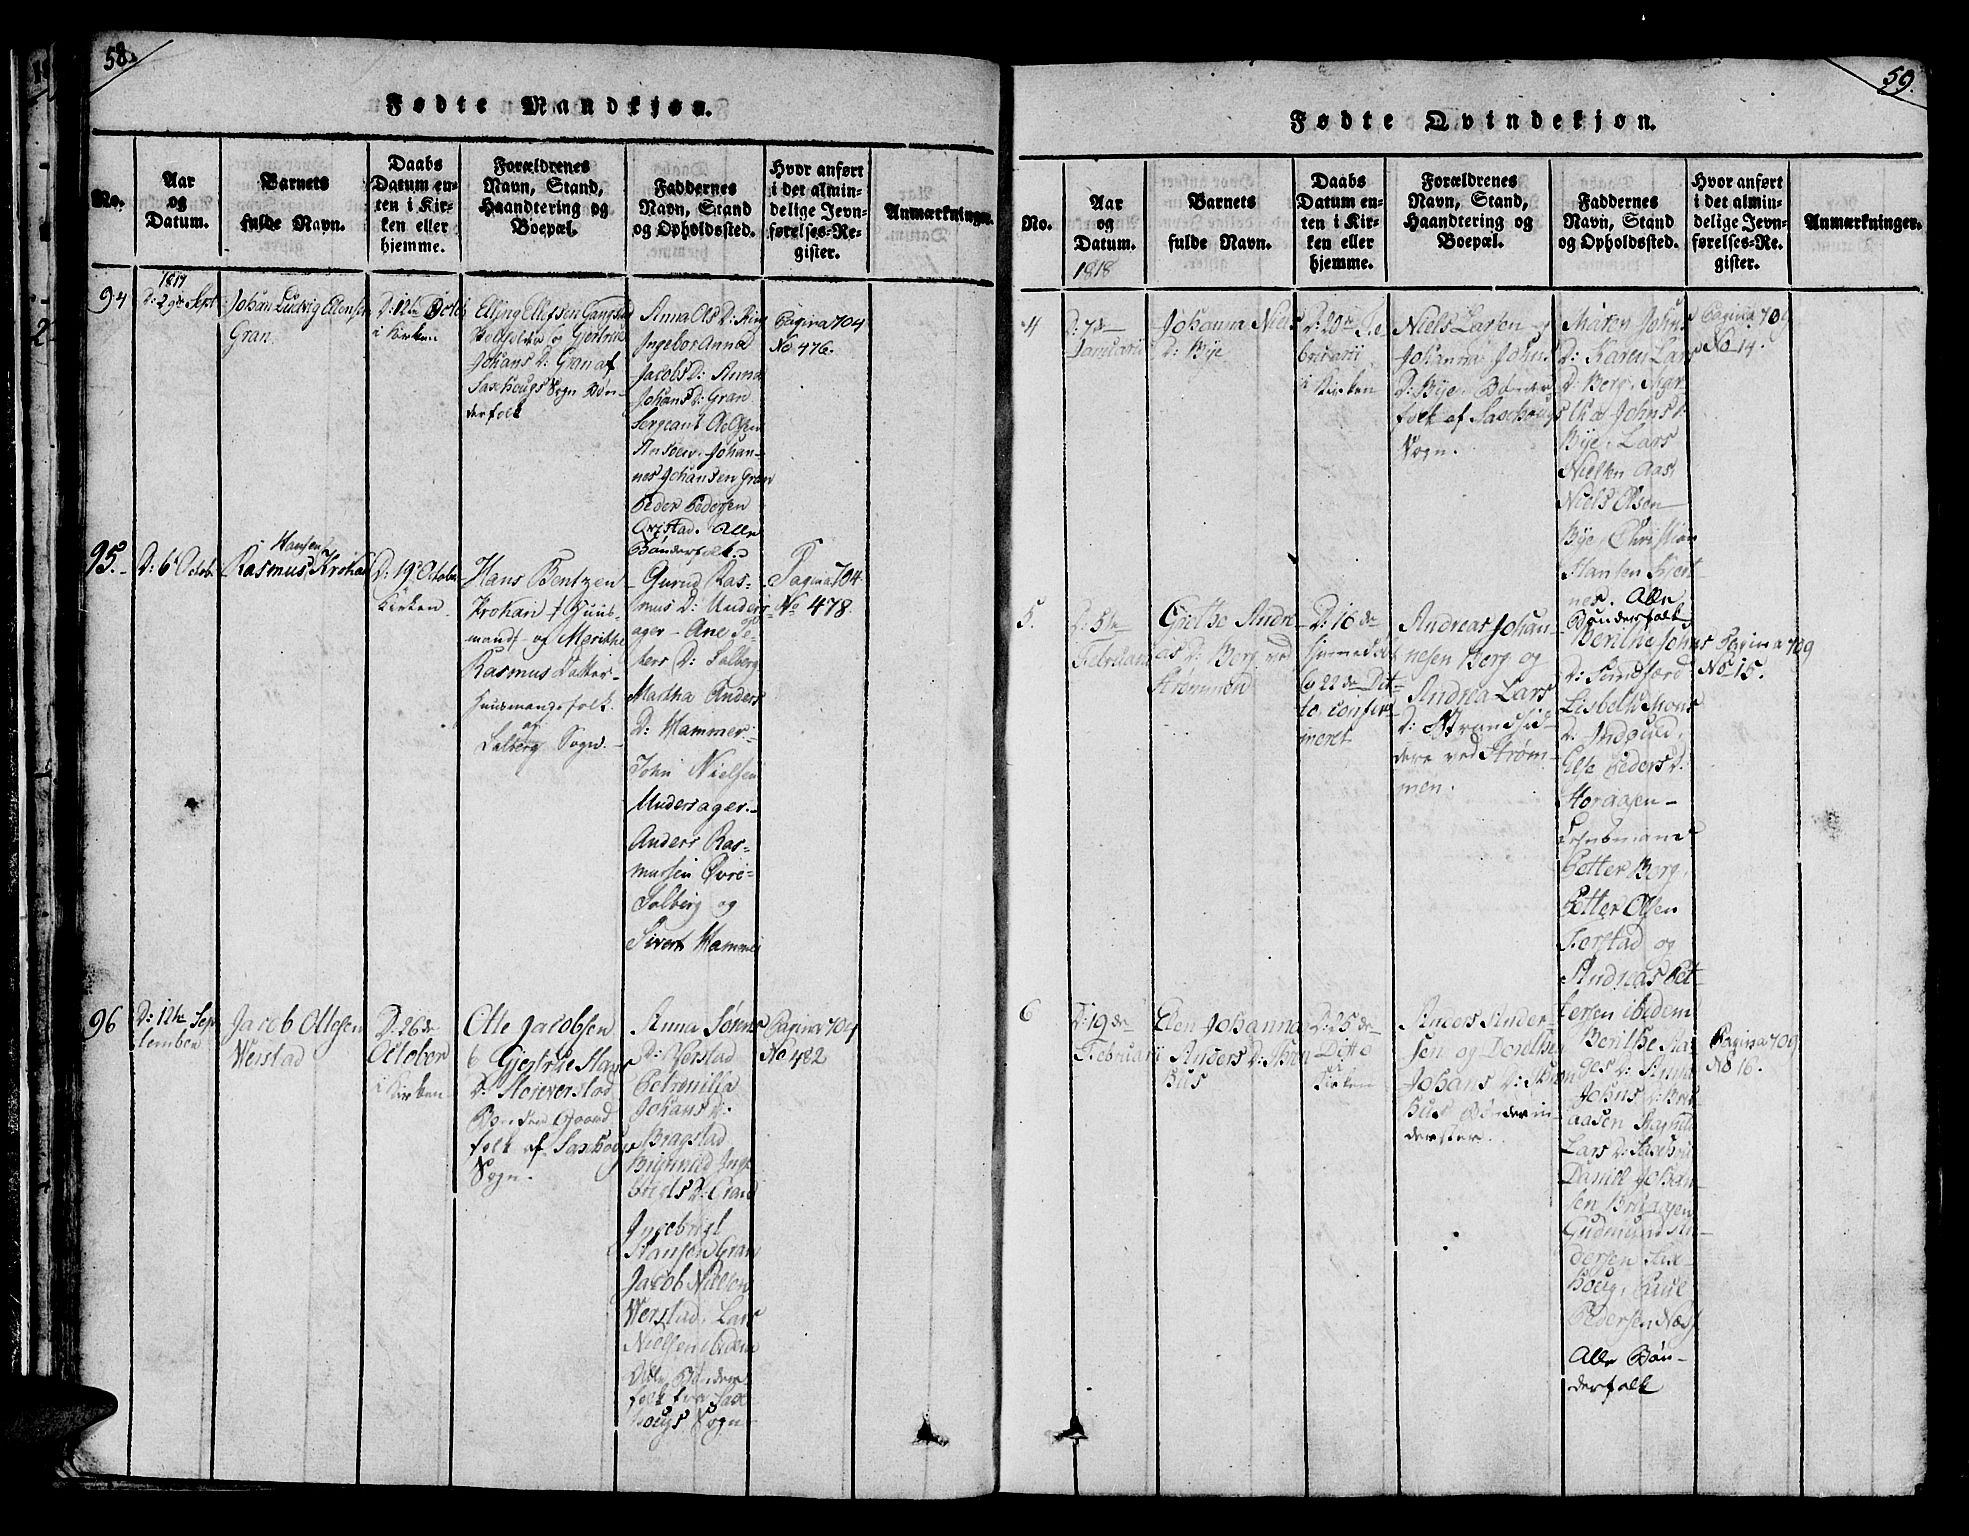 58.
Fødte Mandkjøn.
No.
Aar
og
Datum.
Barnets
fulde Navn.
Daabs
Datum en-
ten i Kir-
ken eller
hjemme.
Forældrenes
Navn, Stand,
Haandtering og
Boepæl.
Faddernes
Navn, Stand
og Opholdssted.
Hvor anført
i det almin-
delige Jevn-
førelses-Re-
gister.
Anmærkninger.
94
1817
D: 29de Sept
Johan Ludvig Ellensen
Gran
D: 12te Octob
i Kirken
Elling Ellefsen Gangstad
og Gjertrud
Johans D: Gran af
Saxhougs Sogn Bøn-
derfolk
Anna Ols D:
Ingebor Anna
Jacobs D: Anna
Johans D: Gran
Sergeant
Johan-
nes Johansen Gran
Peder Pedersen
Qvistad. Alle
Bønderfolk.
Pagina 704
No 476.
95.
D: 6 Octob
Hansen
Rasmus Krokan
D: 19 October
Kirken.
Hans Bentzen
Krokan Huus-
mand og Marithe
Rasmus Datter
huusmandsfolk
af
Salberg Sogn.
Gurud Ras-
mus D: Under-
ager - Ane Pe-
ders D: Salberg
Madtha Anders
D: Hammer-
John Nielsen
Undersager.
Anders Ras-
mussen Øvre-
Salberg og
Sivert Hammer
Pagina 704
No 478.
96
D: 12te Sep-
tember
Jacob Ottesen
Verstad
D: 26de
October
i Kirken
Otte Jacobsen
& Gjertrue Hans
D: Storeverstad
Gaard
folk af Saxhougs
Sogn.
Anna Sønns
D: Verstad
Petronilla
Johans D:
Bragstad
Ing-
brets D: Gran
Ingebrigt
Hansen Gran
Jacob Nielsen
Verstad, Lars
Nielsen ibidem
Alle Bønder
folk fra Sax-
hougs Sogn
Pagina 704
No 482
59.
Fødte Qvindekjøn.
No.
Aar
og
Datum.
1818
Barnets
fulde Navn.
Daabs
Datum en-
ten i Kir-
ken eller
hjemme.
Forældrenes
Navn, Stand,
Haandtering og
Boepæl.
Faddernes
Navn, Stand
og Opholdssted.
Hvor anført
i det almin-
delige Jevn-
førelses-Re-
gister.
Anmærkninger.
4
D: 7de
Januarii
Johanna Niels
D: Bye
D: 20de Fe-
bruarii
i Kirken
Niels Larsen og
Johanna Johns
D: Bye, Bønder
folk af Saxhougs
Sogn.
Maren Johns
D: Karen Lars
D: Berg, Mar-
tha Johns D:
Bye, Lars
Nielsen Aas
Niels Olsen
Bye, Christian
Hansen
Alle
Bønderfolk
Pagina 709
No 14.
5.
D: 5te
Februarii
Grethe Andre
as D: Berg ved
Strømmen
D: 10de
hjemmedøbt
& 22de Dit-
to confir
meret
Andreas Johan-
nesen Berg og
Andrea Lars
D: Strandsid-
dere ved Strøm-
men.
Berithe Johns
D: Sundfærd
Lisbeth Mons
D:
Else Peders D:
Lehnsmand
Petter Berg,
Petter Olsen
og
Andreas Pet-
tersen ibidem
Pagina 709
No 15.
6
D: 19de
Februarii
Elen Johanna
Anders D:
D: 25de
Ditto
Kirken
Anders Ander-
sen og Dorethea
Johans D:
Bønder in-
derster.
Berithe
D: Anna
Johns D:
aasen
Lars D:
Daniel Johan-
sen
Gudmund An-
dersen Sax-
houg, Paul
Pedersen Næss
Alle Bøn-
derfolk
Pagina 709
No 16.